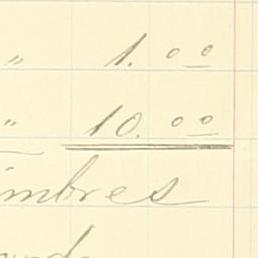 " 1.00
" 10.00
imbres